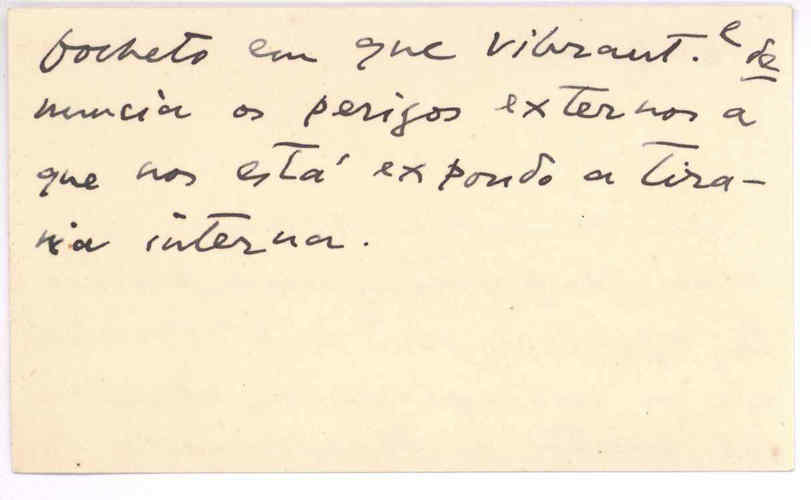 focheto em que vibrant.e de
nuncia os perigos externos a
que nos está expondo a tira-
nia interna.